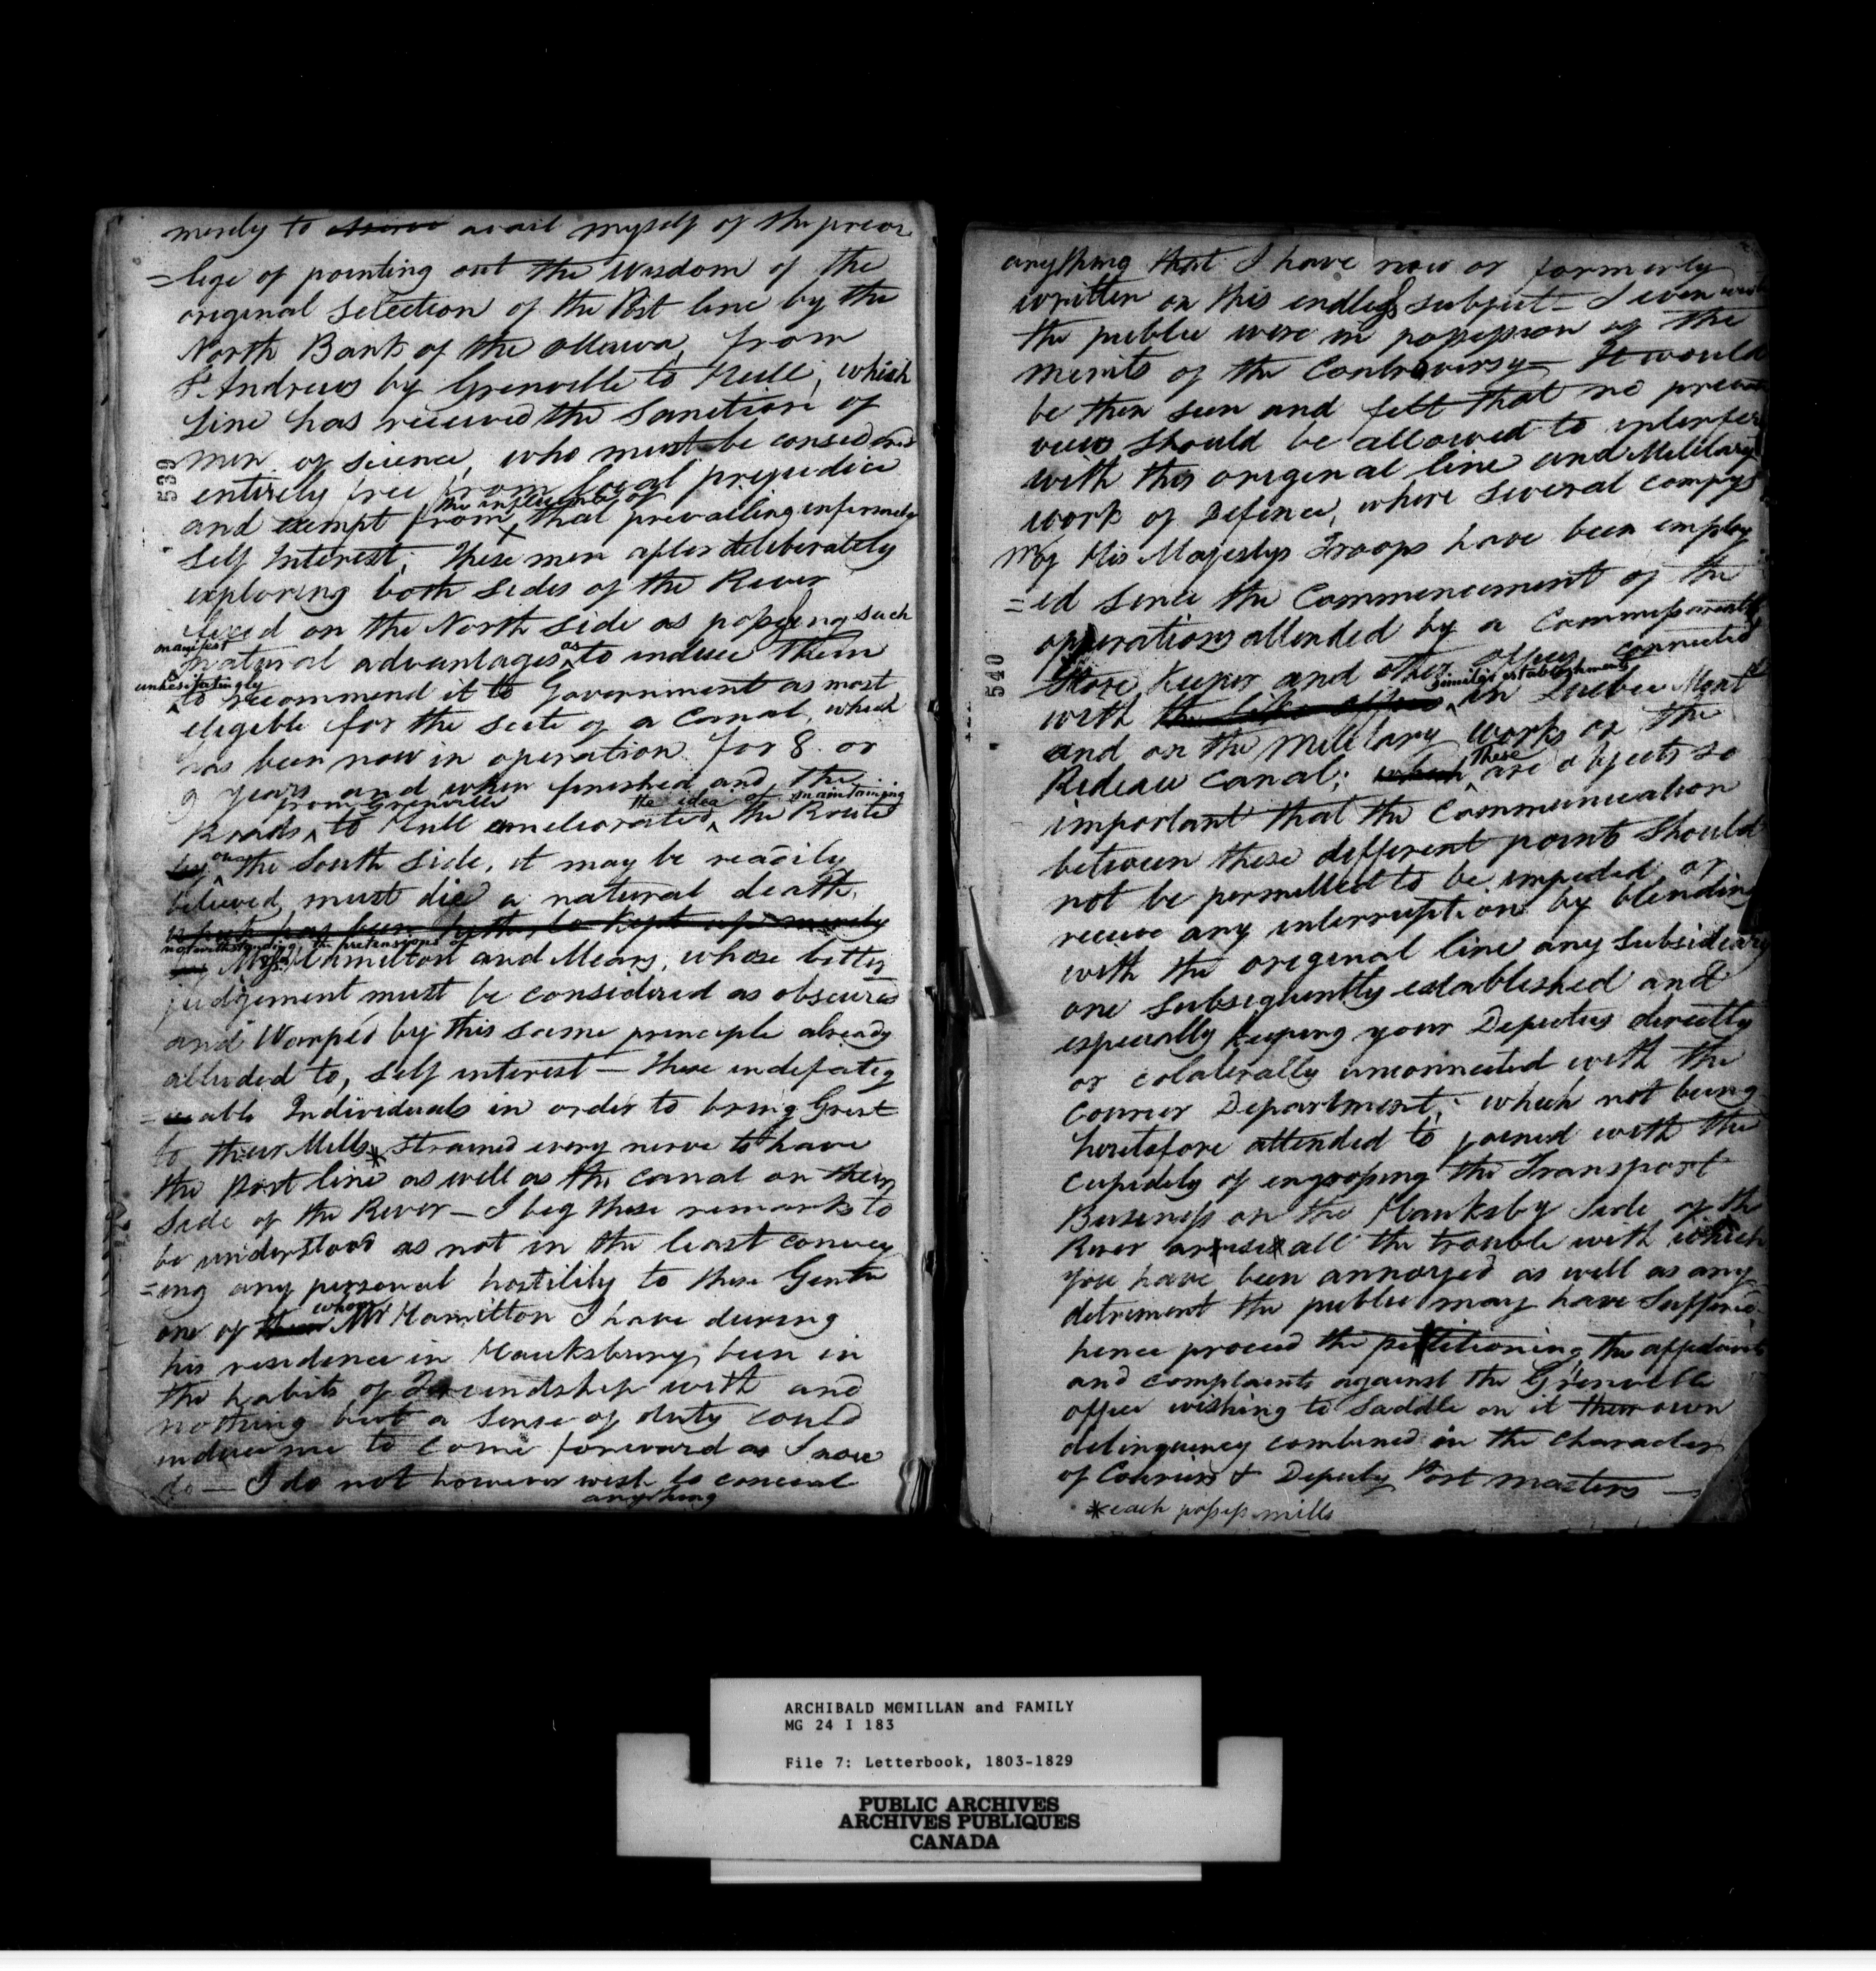 merely to avail myself of the previ
=lege of pointing out the Wisdom of the
original Selection of the Post line by the
North Bank of the Ottawa, from
St Andrews by Grenville to Hull, which
Line has received the Sanction of
men of science, who must be considered
entirely free from local prejudice
the influence of
and exempt from that prevailing infirmity
Self Interest; These men after deliberately
exploring both sides of the River
fixed on the North side as possessing such
manifest
natural advantages as to induce them
unhesitatingly
to recommend it to Government as most
eligible for the scite of a Canal, which
has been now in operation for 8 or
9 years and when finished and the
from Grenville the idea of maintaining
Roads to Hull ameliorated the Route
by on the South Side, it may be readily
believed must die a natural death,
which has been hitherto kept up merely
notwithstanding the pretensions of
by Messrs Hamilton and Mears, whose better
judgement must be considered as obscured
and Warped by this same principle already
alluded to, self interest — these indefatig
=able Individuals in order to bring Grist
to their Mills * strained every nerve to have
the Post line as well as the canal on their
Side of the River — I beg these remarks to
be understood as not in the least convey
=ing any personal hostility to these Gentn
whom
one of them Mr Hamilton I have during
his residence in Hawksbury been in
the habits of Freindship with and
nothing but a sense of duty could
induce me to come forward as I now
do — I do not however wish to conceal
anything
539
anything that I have now or formerly
written on this endless subject — I even wish
the public were in possession of the
merits of the Controversy — It would
be then seen and felt that no private
views should be allowed to interfere
with this original line and Military
work of Defence, where several compys
of His Majestys Troops have been employ
=ed since the Commencement of the
operations attended by a Commissariat
Store Keeper and other offices connected
similar establishments
with the like offices in Quebec Montl
and on the Military works on the
These
Rideau Canal; which are objects so
important that the Communication
between these different points should
not be permitted to be impeded, or
receive any interruption by blending
with the original line any Subsidiary
one subsequently established and
especially keeping your Deputies directly
or colaterally unconnected with the
Courier Department; which not being
heretofore attended to joined with the
cupidity of ingrossing the Transport
Business on the Hauksby Side of the
River arises all the trouble with which
you have been annoyed as well as any
detriment the public may have Suffered,
hence proceed the petitioning, the affidavits
and complaints against the Grenville
office wishing to Saddle on it their own
delinquency combined in the character
of Couriers & Deputy Post masters —
* each possess mills
540
ARCHIBALD MCMILLAN and FAMILY
MG 24 I 183
File 7: Letterbook, 1803-1829
PUBLIC ARCHIVES
ARCHIVES PUBLIQUES
CANADA